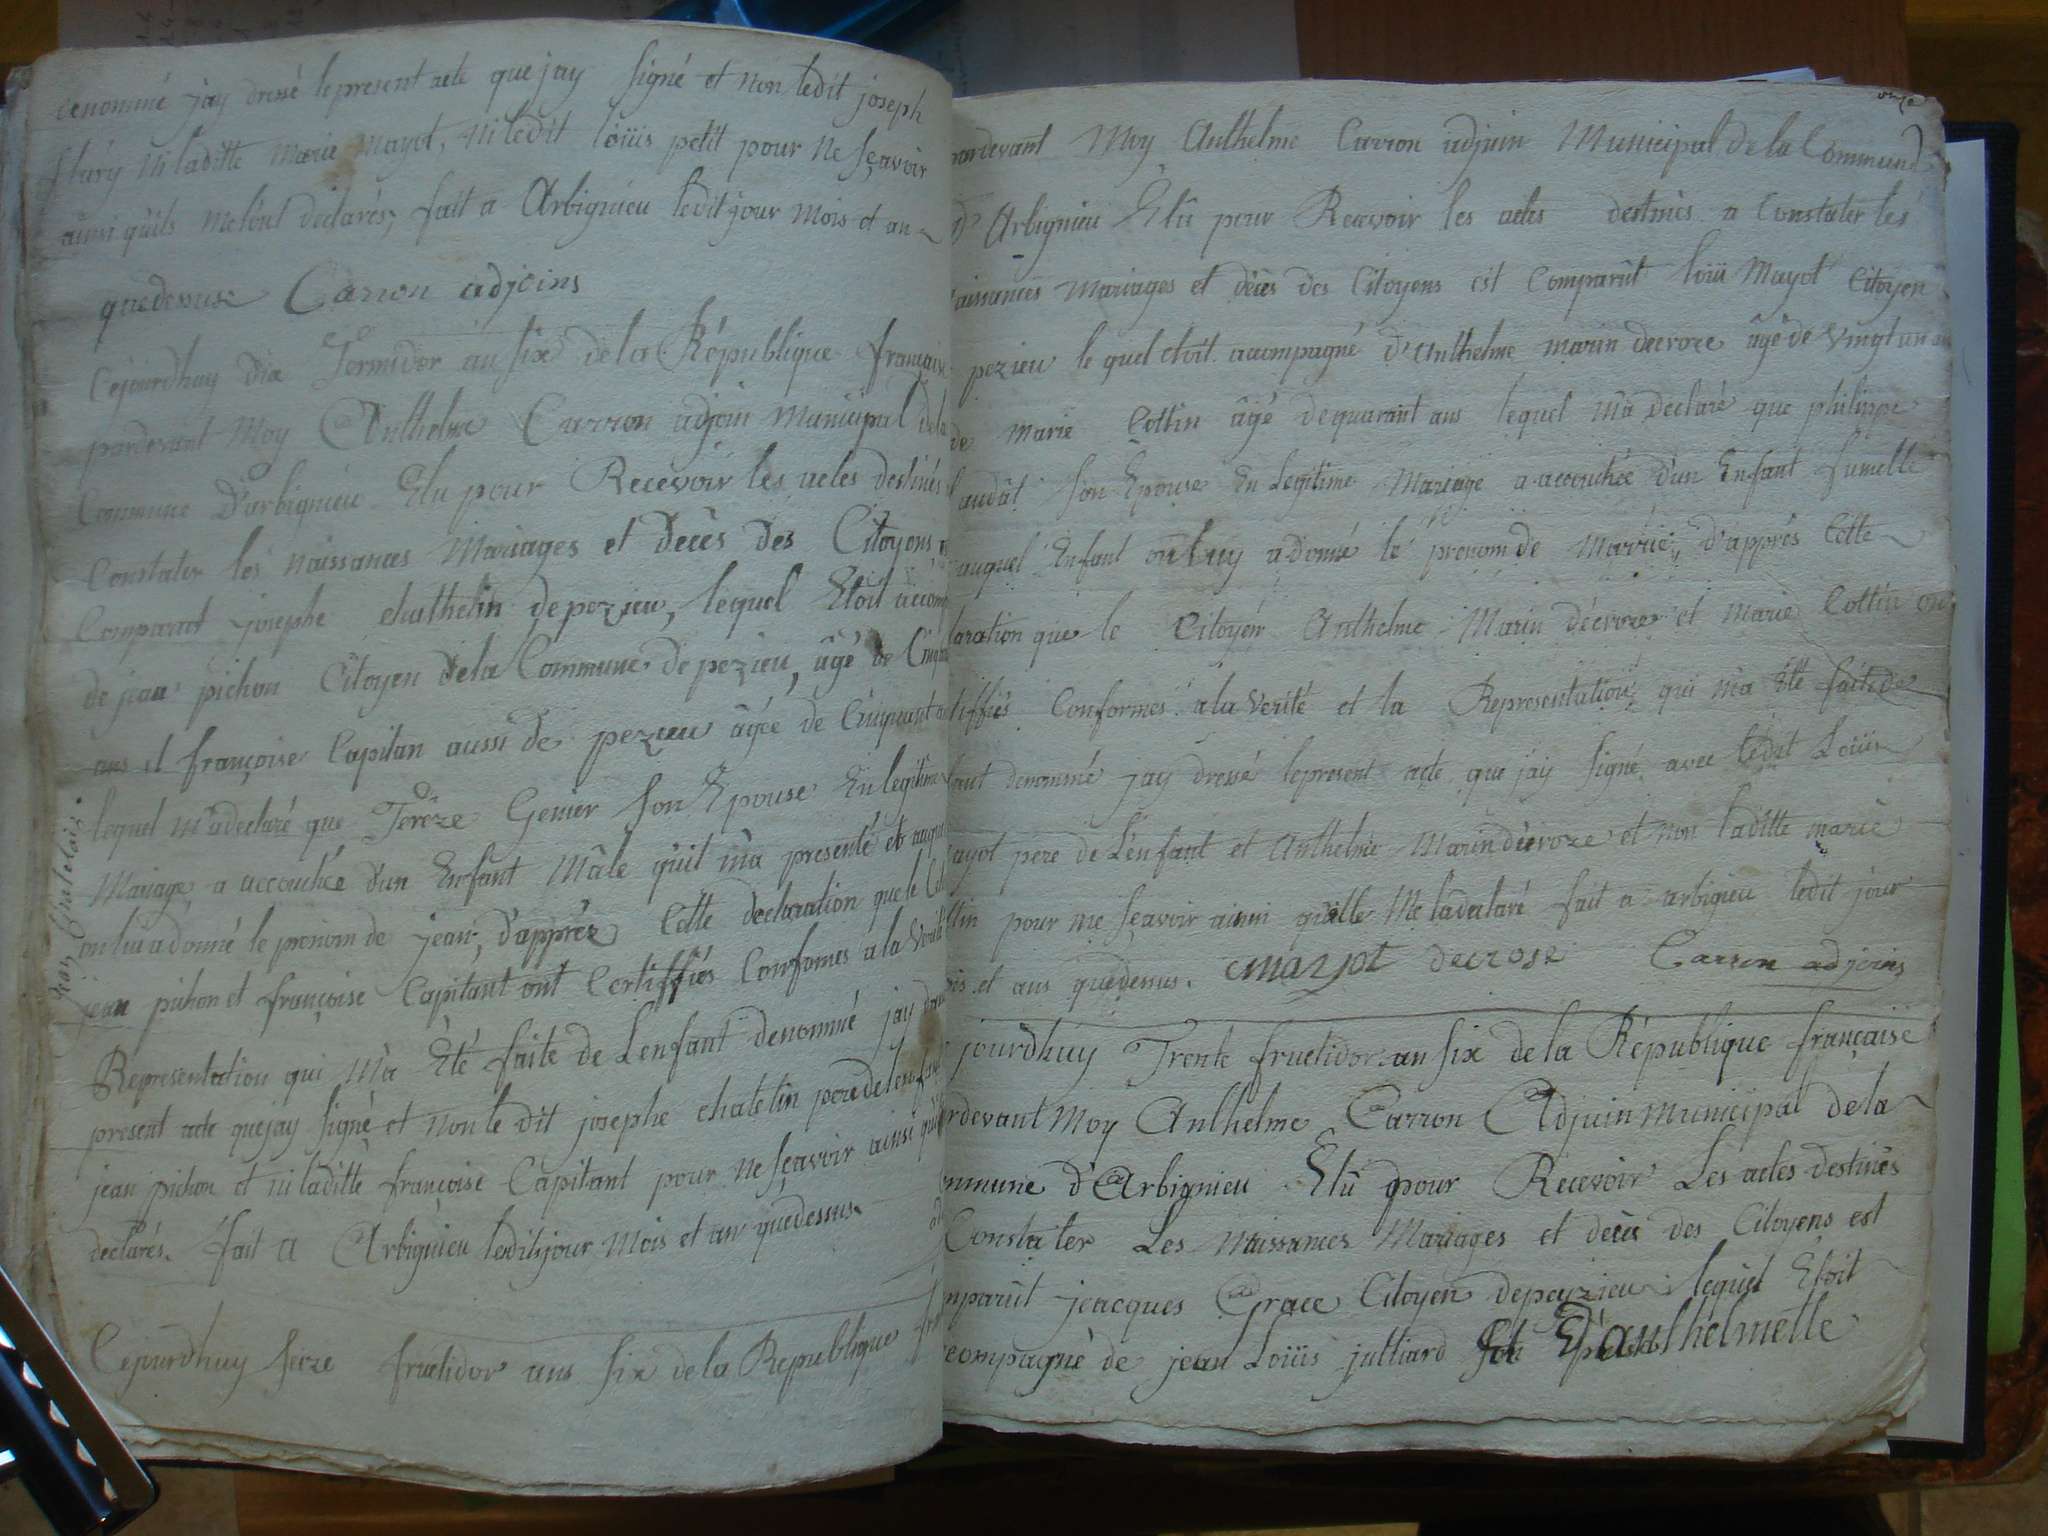 denommé jay dressé lepresent acte que jay signé et non ledit joseph
flury ni laditte marie mayot, ni ledit loüis petit pour ne sçavoir
ainsi quils melont declarés, fait a Arbignieu ledit jour mois et an
quedessuse Carron adjoins
Cejourdhuy dix Termidor an six de la République française
pardevant Moy Anthelme Carron adjoin Municipal dela
Commune D'arbignieu Elu pour Recevoir les actes destinés
Constater les naissances Mariages et decès des Citoyens
Comparut josephe chathelin de pezieu, lequel Etoit accom
de jean pichon Citoyen de la Commune de pezieu, âgé de Cinqua
ans et françoise Capitan aussi de pezieu âgée de Cinquant
lequel m'a declaré que Terèze Genier son Epouse En legitime
Mariage, a accouchée d'un Enfant Mâle qu'il m'a presenté et auqu
on lui a donné le prenom de jean, d'apprèz Cette declaration que le Cit
jean pichon et françoise Capitant ont Certiffiés Confomes a la verit
Representation qui M'a Eté faite de L'enfant denommé jay
présent acte que jay signé et non le dit josephe chatelin pere de lenfan
jean pichon et ni laditte françoise Capitant pour ne sçavoir ainsi qu
declarés. fait a Arbignieu leditjour Mois et an quedessus
Cejourdhuy seize fructidor ans six de la Republique
jean Chatelain
onze
pardevant Moy Anthelme Carron adjuin Municipal de la Commune
d'Arbignieu Elû pour Recevoir les actes destinés a Constater les
naissances Mariages et décès des Citoyens est Comparût loüi Mayot Citoyen
pezieu le quel etoit acompagné d'Anthelme marin decroze âgé de vingt un an
de marie Cottin âgé de quarant ans lequel m'a declaré que philippe
laudât son Epouse En Legitime Mariage a accouchée d'un Enfant fumelle
auquel Enfant on luy a donné le prenom de Marrie, d'apprés Cette
laration que le Citoyen Anthelme Marin décroze et Marie Cottin on
tiffiés Conformes a la verité et la Representation qui m'a Eté faite de
fant denommé jay dressé lepresent acte que jay signé avec ledit Loüis
ayot pere de L'enfant et Anthelme Marin décroze et non laditte marie
ttin pour ne sçavoir ainsi quelle Me ladeclaré fait a arbigieu ledit jour
ois et ans quedessus. mayot decrose Carron adjoins
jourdhuy Trente fructidor an six de la République française
rdevant Moy Anthelme Carron Adjuin Municipal de la
mmune d'Arbignieu Elû pour Recevoir Les actes destinés
Constater Les Naissances Mariages et décès des Citoyens est
mparût jeacques Grace Citoyen depezieu lequel Etoit
compagné de jean Loüis julliard D'anthelmette